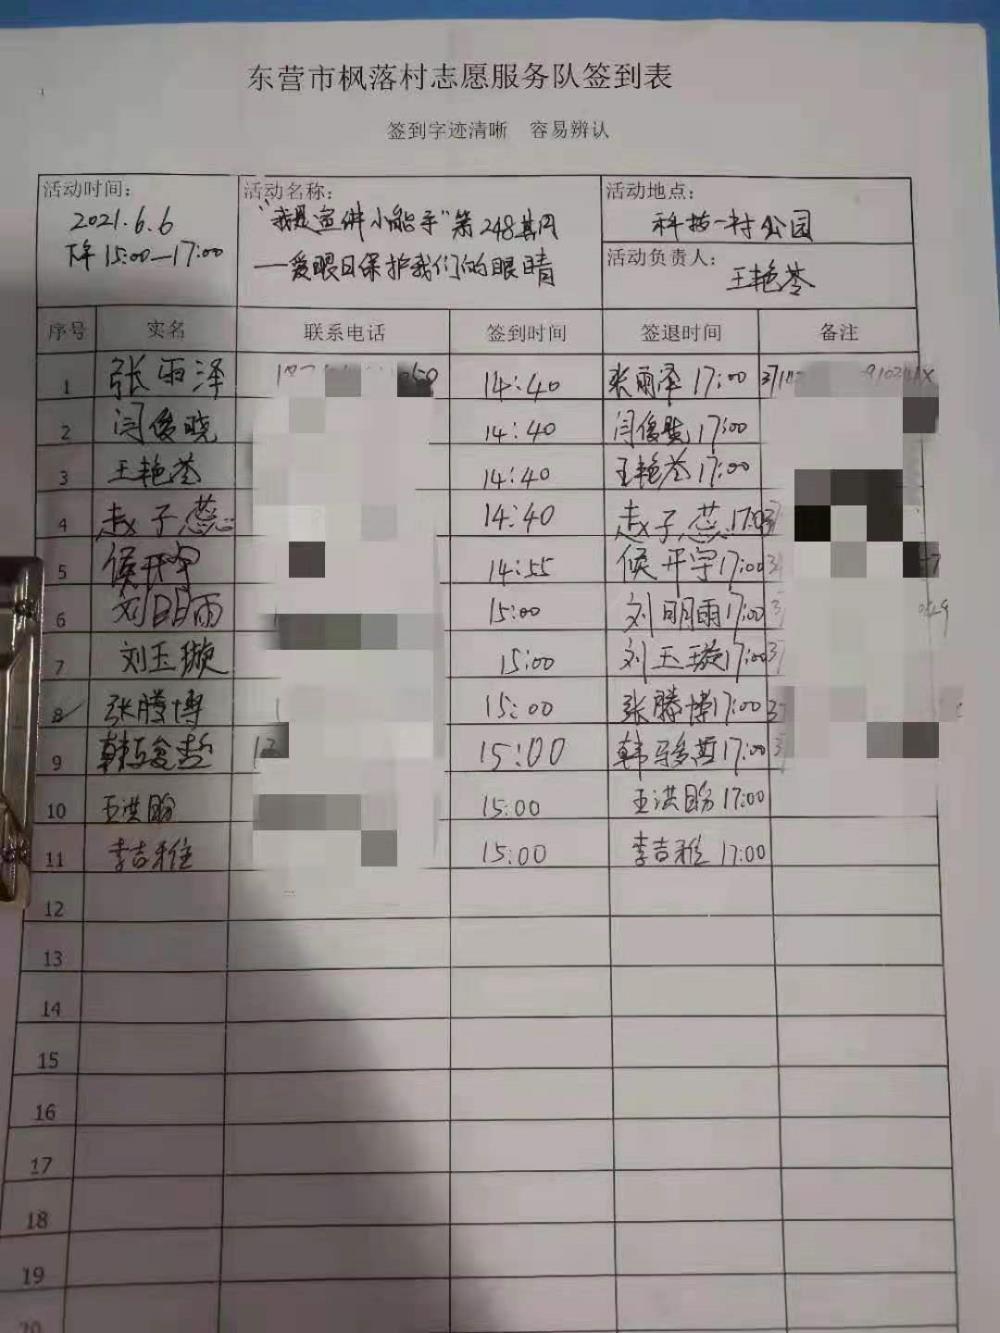 东营市枫落村志愿服务队签到表
签到字迹清晰 容易辨认
活动时间：
2021.6.6
下午15:00—17:00
活动名称：
"我是宣讲小能手"第248期
—爱眼日保护我们的眼睛
活动地点：
科技一村公园
活动负责人：
王艳苓
序号 实名 联系电话 签到时间 签退时间 备注
1 张雨泽 14:40 张雨泽 17:00
2 闫俊晓 14:40 闫俊晓 17:00
3 王艳苓 14:40 王艳苓 17:00
4 赵子蕊 14:40 赵子蕊
5 侯开宇 14:55 侯开宇 17:00
6 刘明雨 15:00 刘明雨 17:00
7 刘玉璇 15:00 刘玉璇 17:00
8 张腾博 15:00 张腾博 17:00
9 15:00 17:00
10 王洪 15:00 王洪 17:00
11 李吉雅 15:00 李吉雅 17:00
12
13
14
15
16
17
18
19
20